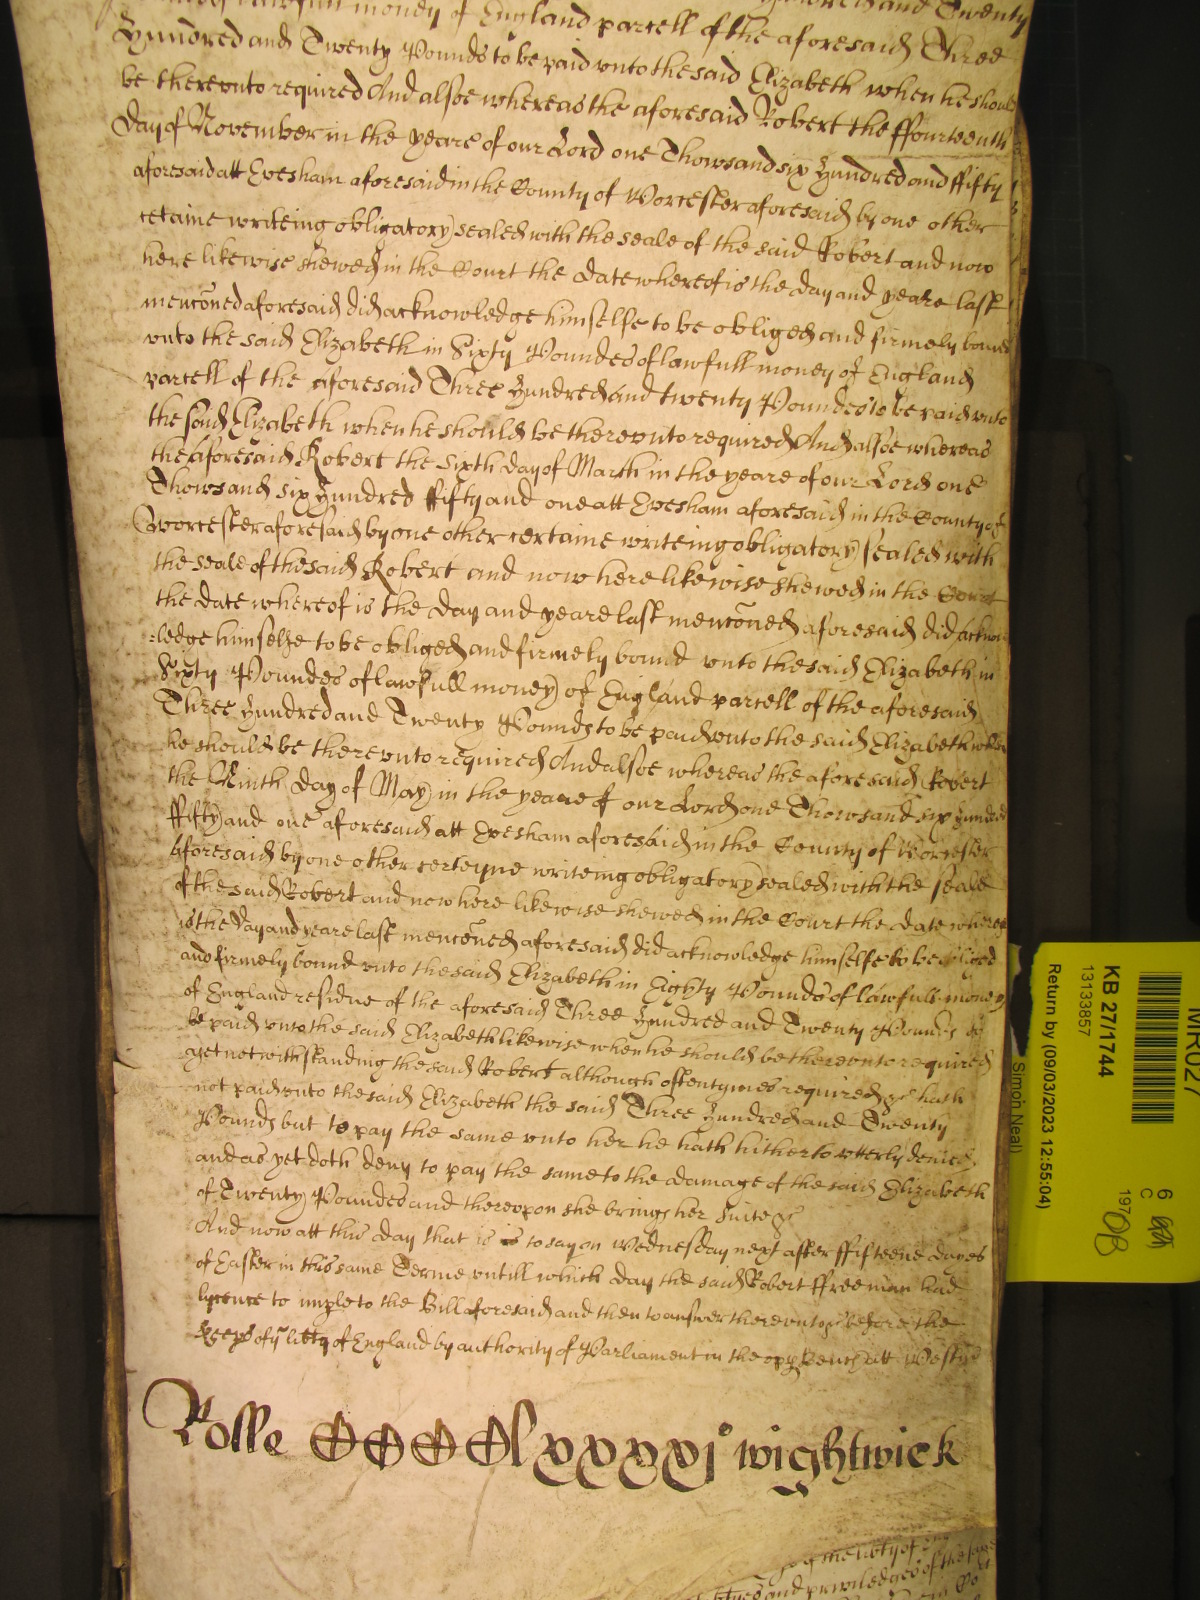 lawfull money of England parcell of the aforesaid Three
Hundred and Twenty
Hundred and Twenty Pounds to be paid vnto the said Elizabeth when he should
be therevnto required And alsoe whereas the aforesaid Robert the ffourteenth
day of November in the yeare of our Lord one Thowsand six Hundred and ffifty
aforesaid att Evesham aforesaid in the County of Worcester aforesaid by one other
certaine writeing obligatory sealed with the seale of the said Robert and now
here likewise shewed in the Court the date whereof is the day and yeare last
menc̄oned aforesaid did acknowledge himselfe to be obliged and firmely bound
vnto the said Elizabeth in Sixty Poundes of lawfull money of England
parcell of the aforesaid Three Hundred and twenty Poundes to be paid vnto
the said Elizabeth when he should be therevnto required And alsoe whereas
the aforesaid Robert the Sixth day of March in the yeare of our Lord one
Thowsand six Hundred ffifty and one att Evesham aforesaid in the County of
Worcester aforesaid by one other certaine writeing obligatory sealed with
the seale of the said Robert and now here likewise shewed in the Court
the date whereof is the day and yeare last menc̄oned aforesaid did acknow
:ledge himselfe to be obliged and firmely bound vnto the said Elizabeth in
Sixty Poundes of lawfull money of England parcell of the aforesaid
Three Hundred and Twenty Pounds to be paid vnto the said Elizabeth when
he should be therevnto required And alsoe whereas the aforesaid Robert
the Ninth day of May in the yeare of our Lord one Thowsand six Hundred
ffifty and one aforesaid att Evesham aforesaid in the County of Worcester
aforesaid by one other certeyne writeing obligatory sealed with the seale
of the said Robert and now here likewise shewed in the Court the date whereof
is the day and yeare last menc̄oned aforesaid did acknowledge himselfe to be obliged
and firmely bound vnto the said Elizabeth in Eighty Pounds of lawfull money
of England residue of the aforesaid Three Hundred and Twenty Pounds to
be paid vnto the said Elizabeth likewise when he should be therevnto required
yet notwithstanding the said Robert although oftentymes required &c hath
not paid vnto the said Elizabeth the said Three Hundred and Twenty
Pounds but to pay the same vnto her he hath hitherto vtterly denied
and as yet doth deny to pay the same to the damage of the said Elizabeth
of Twenty Poundes and therevpon she brings her suite &c
And now att this day that is to say on Wednesday next after ffifteene dayes
of Easter in this same Terme vntill which day the said Robert ffreeman had
lycence to imple to the Bill aforesaid and then to answer therevnto &c before the
Keeps of ye libty of England by authority of Parliament in the vpp Bench att Westmr
Rolle CCCClxxxxjo wightwick
the libty of
and priviledges of the
MR027
KB 27/1744
13133857
Return by (09/03/2023 12:55:04)
Simon Neal)
6
C
197